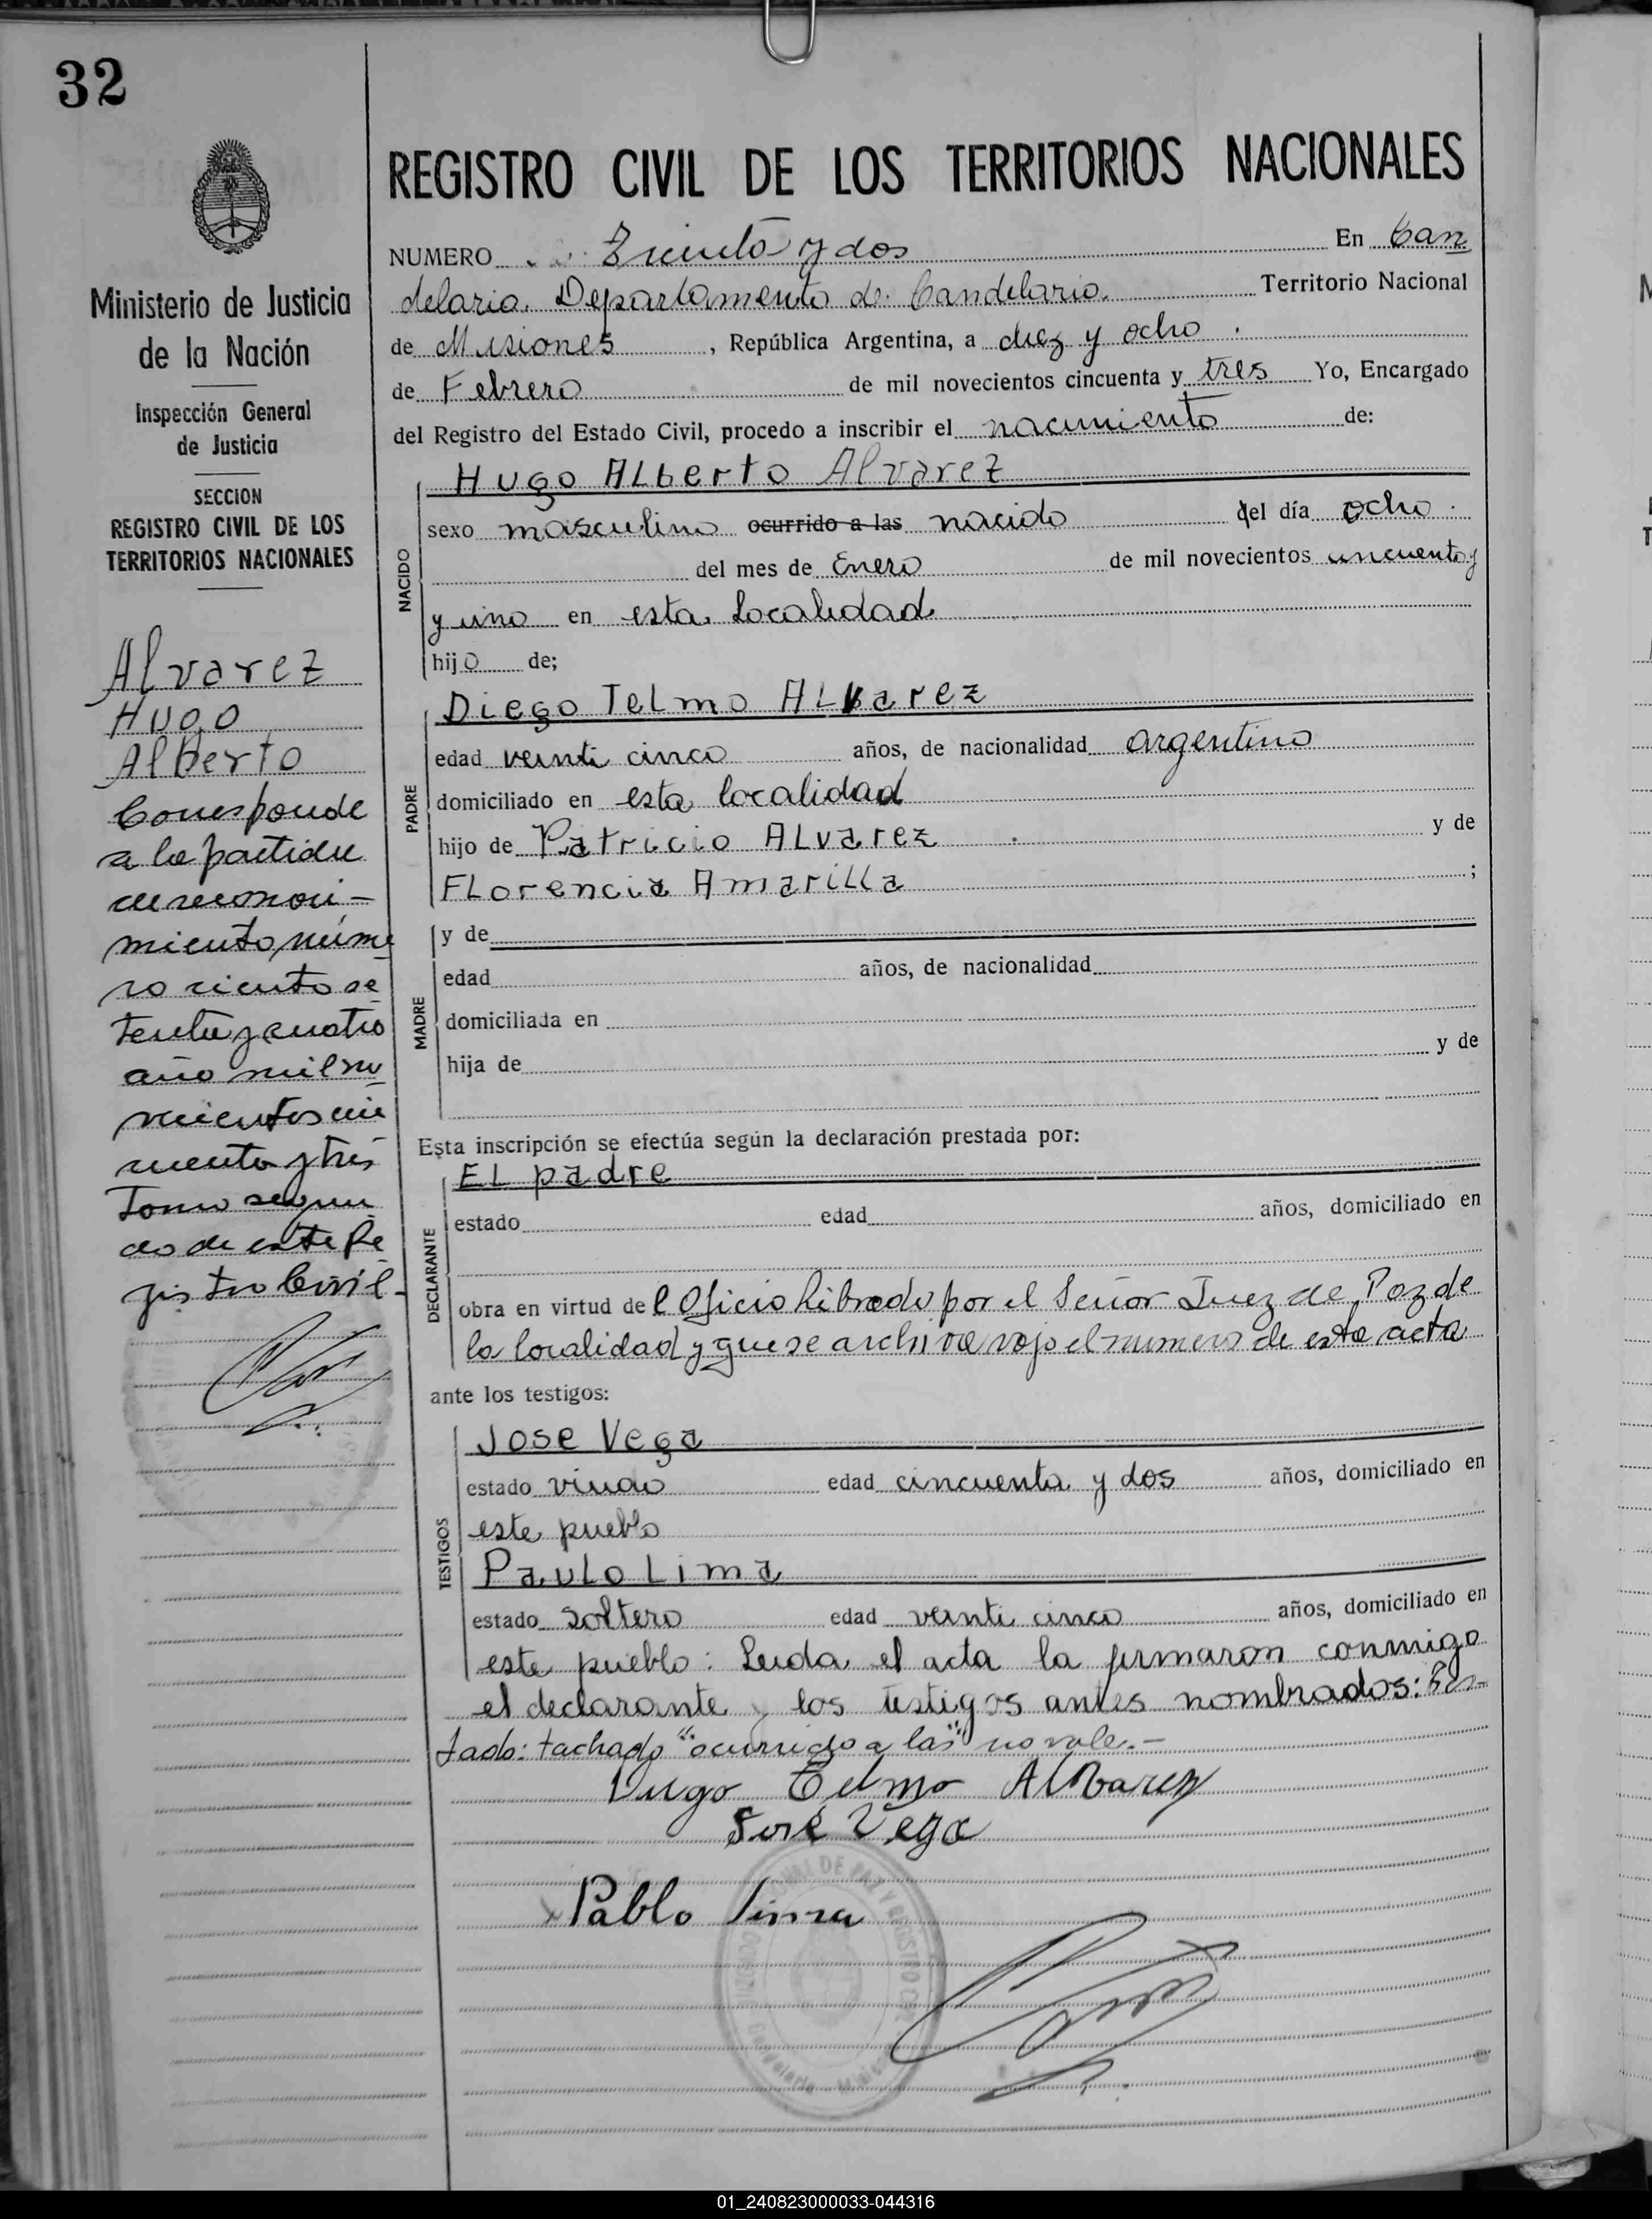 32
Ministerio de Justicia
de la Nación
Inspección General
de Justicia
SECCION
REGISTRO CIVIL DE LOS
TERRITORIOS NACIONALES
Alvarez
Hugo
Alberto
Corresponde
a la partida
de reconoci-
miento núme
ro ciento se
tenta y cuatro
año mil no
vecientos cin
cuenta y tres
Tomo segun
do de este Re
gistro Civil.-
REGISTRO CIVIL DE LOS TERRITORIOS NACIONALES
NUMERO Treinta y dos En Can
delaria. Departamento de Candelaria. Territorio Nacional
de Misiones, República Argentina, a diez y ocho
de Febrero de mil novecientos cincuenta y tres Yo, Encargado
del Registro del Estado Civil, procedo a inscribir el nacimiento de:
NACIDO
Hugo ALberto Alvarez
sexo masculino ocurrido a las nacido del día ocho
del mes de Enero de mil novecientos cincuenta y
y uno en esta Localidad
hijo de;
PADRE
Diego TeLmo ALvarez
edad veinti cinco años, de nacionalidad argentino
domiciliado en esta localidad
hijo de Patricio ALvarez y de
FLorencia AmariLLa ;
MADRE
y de
edad años, de nacionalidad
domiciliada en
hija de y de
Esta inscripción se efectúa según la declaración prestada por:
DECLARANTE
EL padre
estado edad años, domiciliado en
obra en virtud del Oficio librado por el Señor Juez de Paz de
la localidad y que se archiva vajo el numero de esta acta
ante los testigos:
TESTIGOS
Jose Vega
estado viudo edad cincuenta y dos años, domiciliado en
este pueblo
PauLo Lima
estado soltero edad veinti cinco años, domiciliado en
este pueblo: Leida el acta la firmaron conmigo
el declarante y los testigos antes nombrados:
tado: tachado "ocurrido a las" no vale.-
Diego Telmo Albarez
José Vega
Pablo Lima
Candelaria - Misiones
01_240823000033-044316